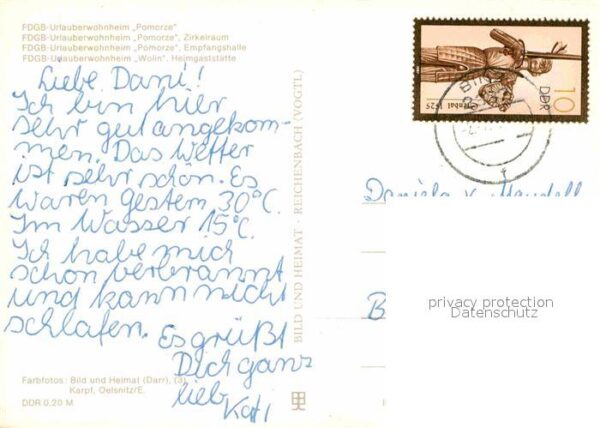 FDGB-Urlauberwohnheim „Pomorze"
FDGB-Urlauberwohnheim „Pomorze", Zirkelraum
FDGB-Urlauberwohnheim „Pomorze", Empfangshalle
FDGB-Urlauberwohnheim „Wolin", Heimgaststätte
Liebe Dani!
Ich bin hier
sehr gut angekom-
men. Das Wetter
ist sehr schön. Es
waren gestern 30°C.
Im Wasser 15°C.
Ich habe mich
schon verbrannt
und kann nicht
schlafen. Es grüßt
Dich ganz
lieb Kati
Farbfotos: Bild und Heimat (Darr), (3)
Karpf, Oelsnitz/E.
DDR 0,20 M
BILD UND HEIMAT · REICHENBACH (VOGTL)
10
DDR
1525
Daniela
B
privacy protection
Datenschutz